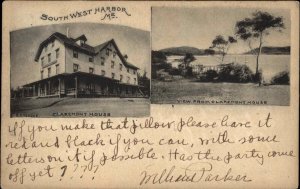 SOUTH WEST HARBOR
ME.
CLAREMONT HOUSE
VIEW FROM CLAREMONT HOUSE
If you make that pillow please have it
red and black if you can, with some
letters on it if possible. Has the party come
off yet????
William Parker